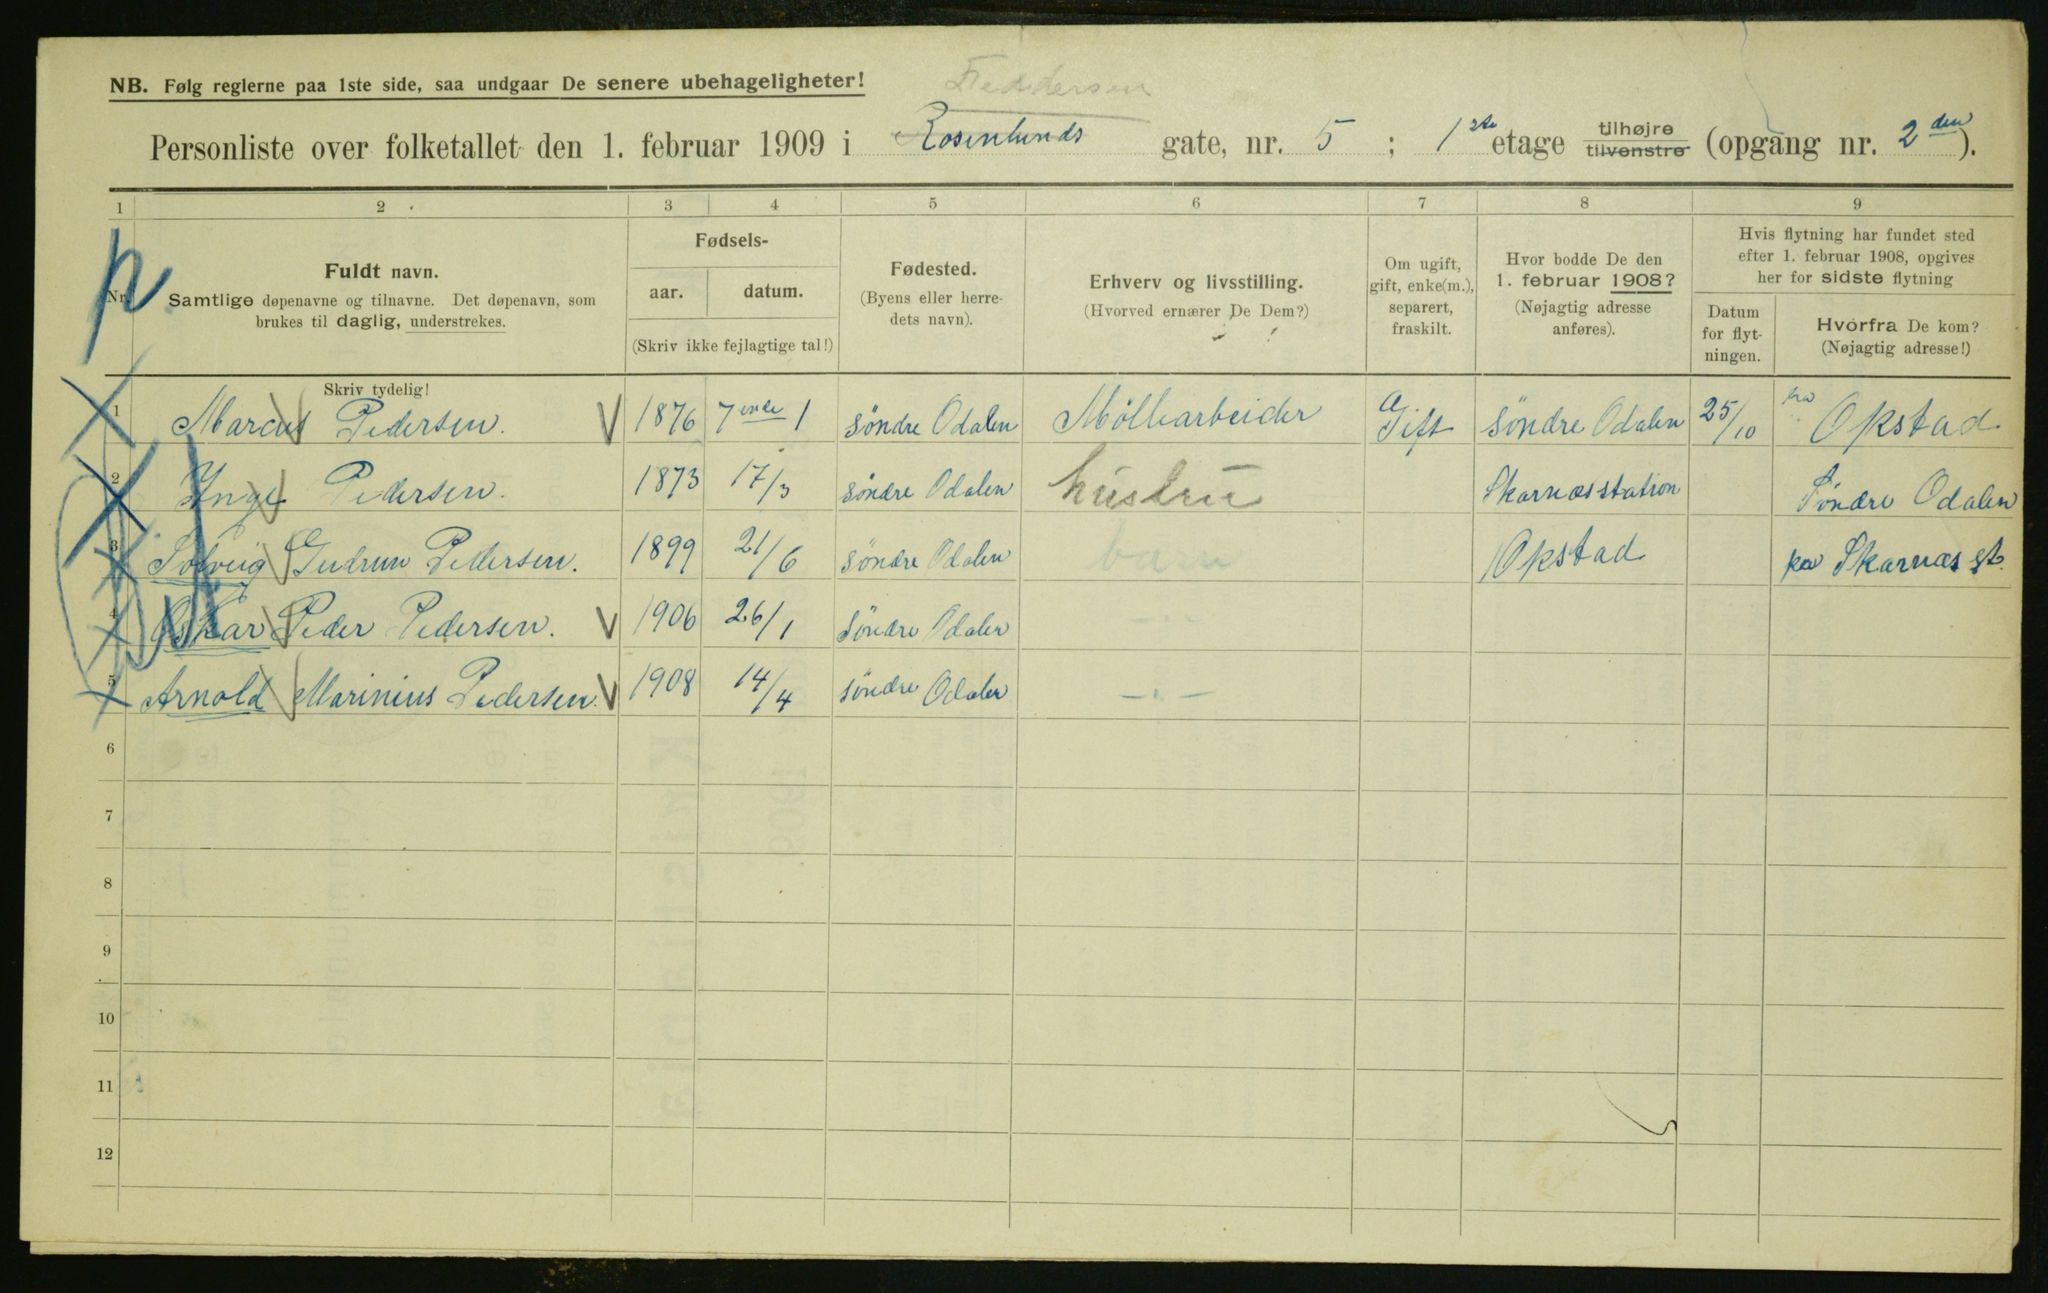 Feddersen
NB. Følg reglerne paa 1ste side, saa undgaar De senere ubehageligheter!
Personliste over folketallet den 1. februar 1909 i Rosenlunds gate, nr. 5 ; 1ste etage tilhøjre tilvenstre (opgang nr. 2den).
1 2 3 4 5 6 7 8 9
Nr.
Fuldt navn.
Samtlige døpenavne og tilnavne. Det døpenavn, som
brukes til daglig, understrekes.
Skriv tydelig!
Fødsels-
aar. datum.
(Skriv ikke fejlagtige tal!)
Fødested.
(Byens eller herre-
dets navn).
Erhverv og livsstilling.
(Hvorved ernærer De Dem?)
Om ugift,
gift, enke(m.),
separert,
fraskilt.
Hvor bodde De den
1. februar 1908?
(Nøjagtig adresse
anføres).
Hvis flytning har fundet sted
efter 1. februar 1908, opgives
her for sidste flytning
Datum
for flyt-
ningen.
Hvorfra De kom?
(Nøjagtig adresse!)
1 Marcus Pedersen. 1876 7ende 1 Söndre Odalen Möllearbeider Gift Söndre Odalen 25/10 fra Opstad
2 Inge Pedersen. 1873 17/3 Söndre Odalen hustru Skarnæsstation Söndre Odalen
3 Solveig Gudrun Pedersen. 1899 21/6 Söndre Odalen barn Opstad pr Skarnæs st.
4 Oskar Peder Pedersen. 1906 26/1 Söndre Odalen — " —
5 Arnold Marinius Pedersen. 1908 14/4 Söndre Odalen — " —
6
7
8
9
10
11
12